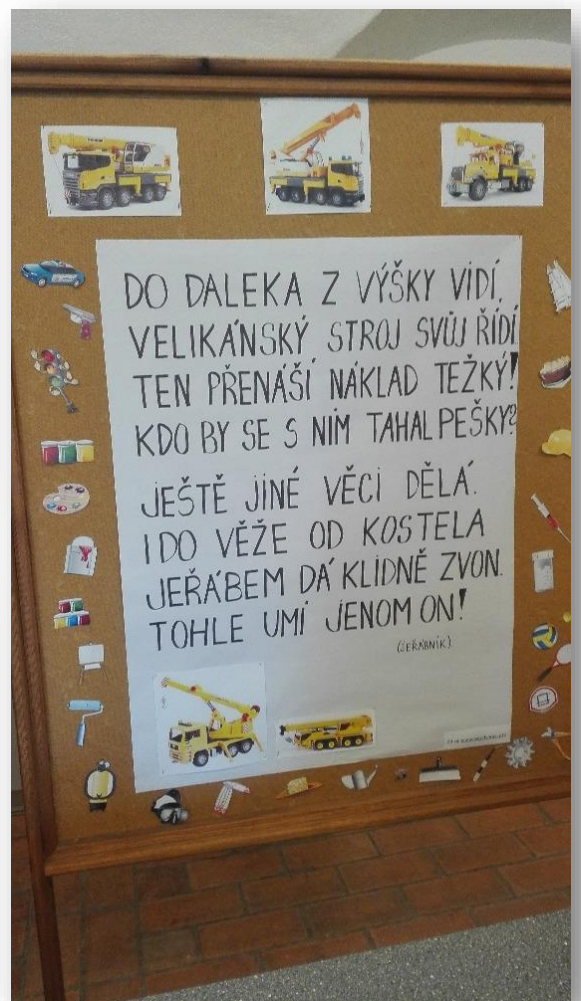 DO DALEKA Z VÝŠKY VIDÍ,
VELIKÁNSKÝ STROJ SVŮJ ŘÍDÍ
TEN PŘENÁŠÍ NÁKLAD TEŽKÝ!
KDO BY SE S NÍM TAHAL PEŠKY?
JEŠTĚ JINÉ VĚCI DĚLÁ.
I DO VĚŽE OD KOSTELA
JEŘÁBEM DÁ KLIDNĚ ZVON.
TOHLE UMÍ JENOM ON!
(JEŘÁBNÍK)